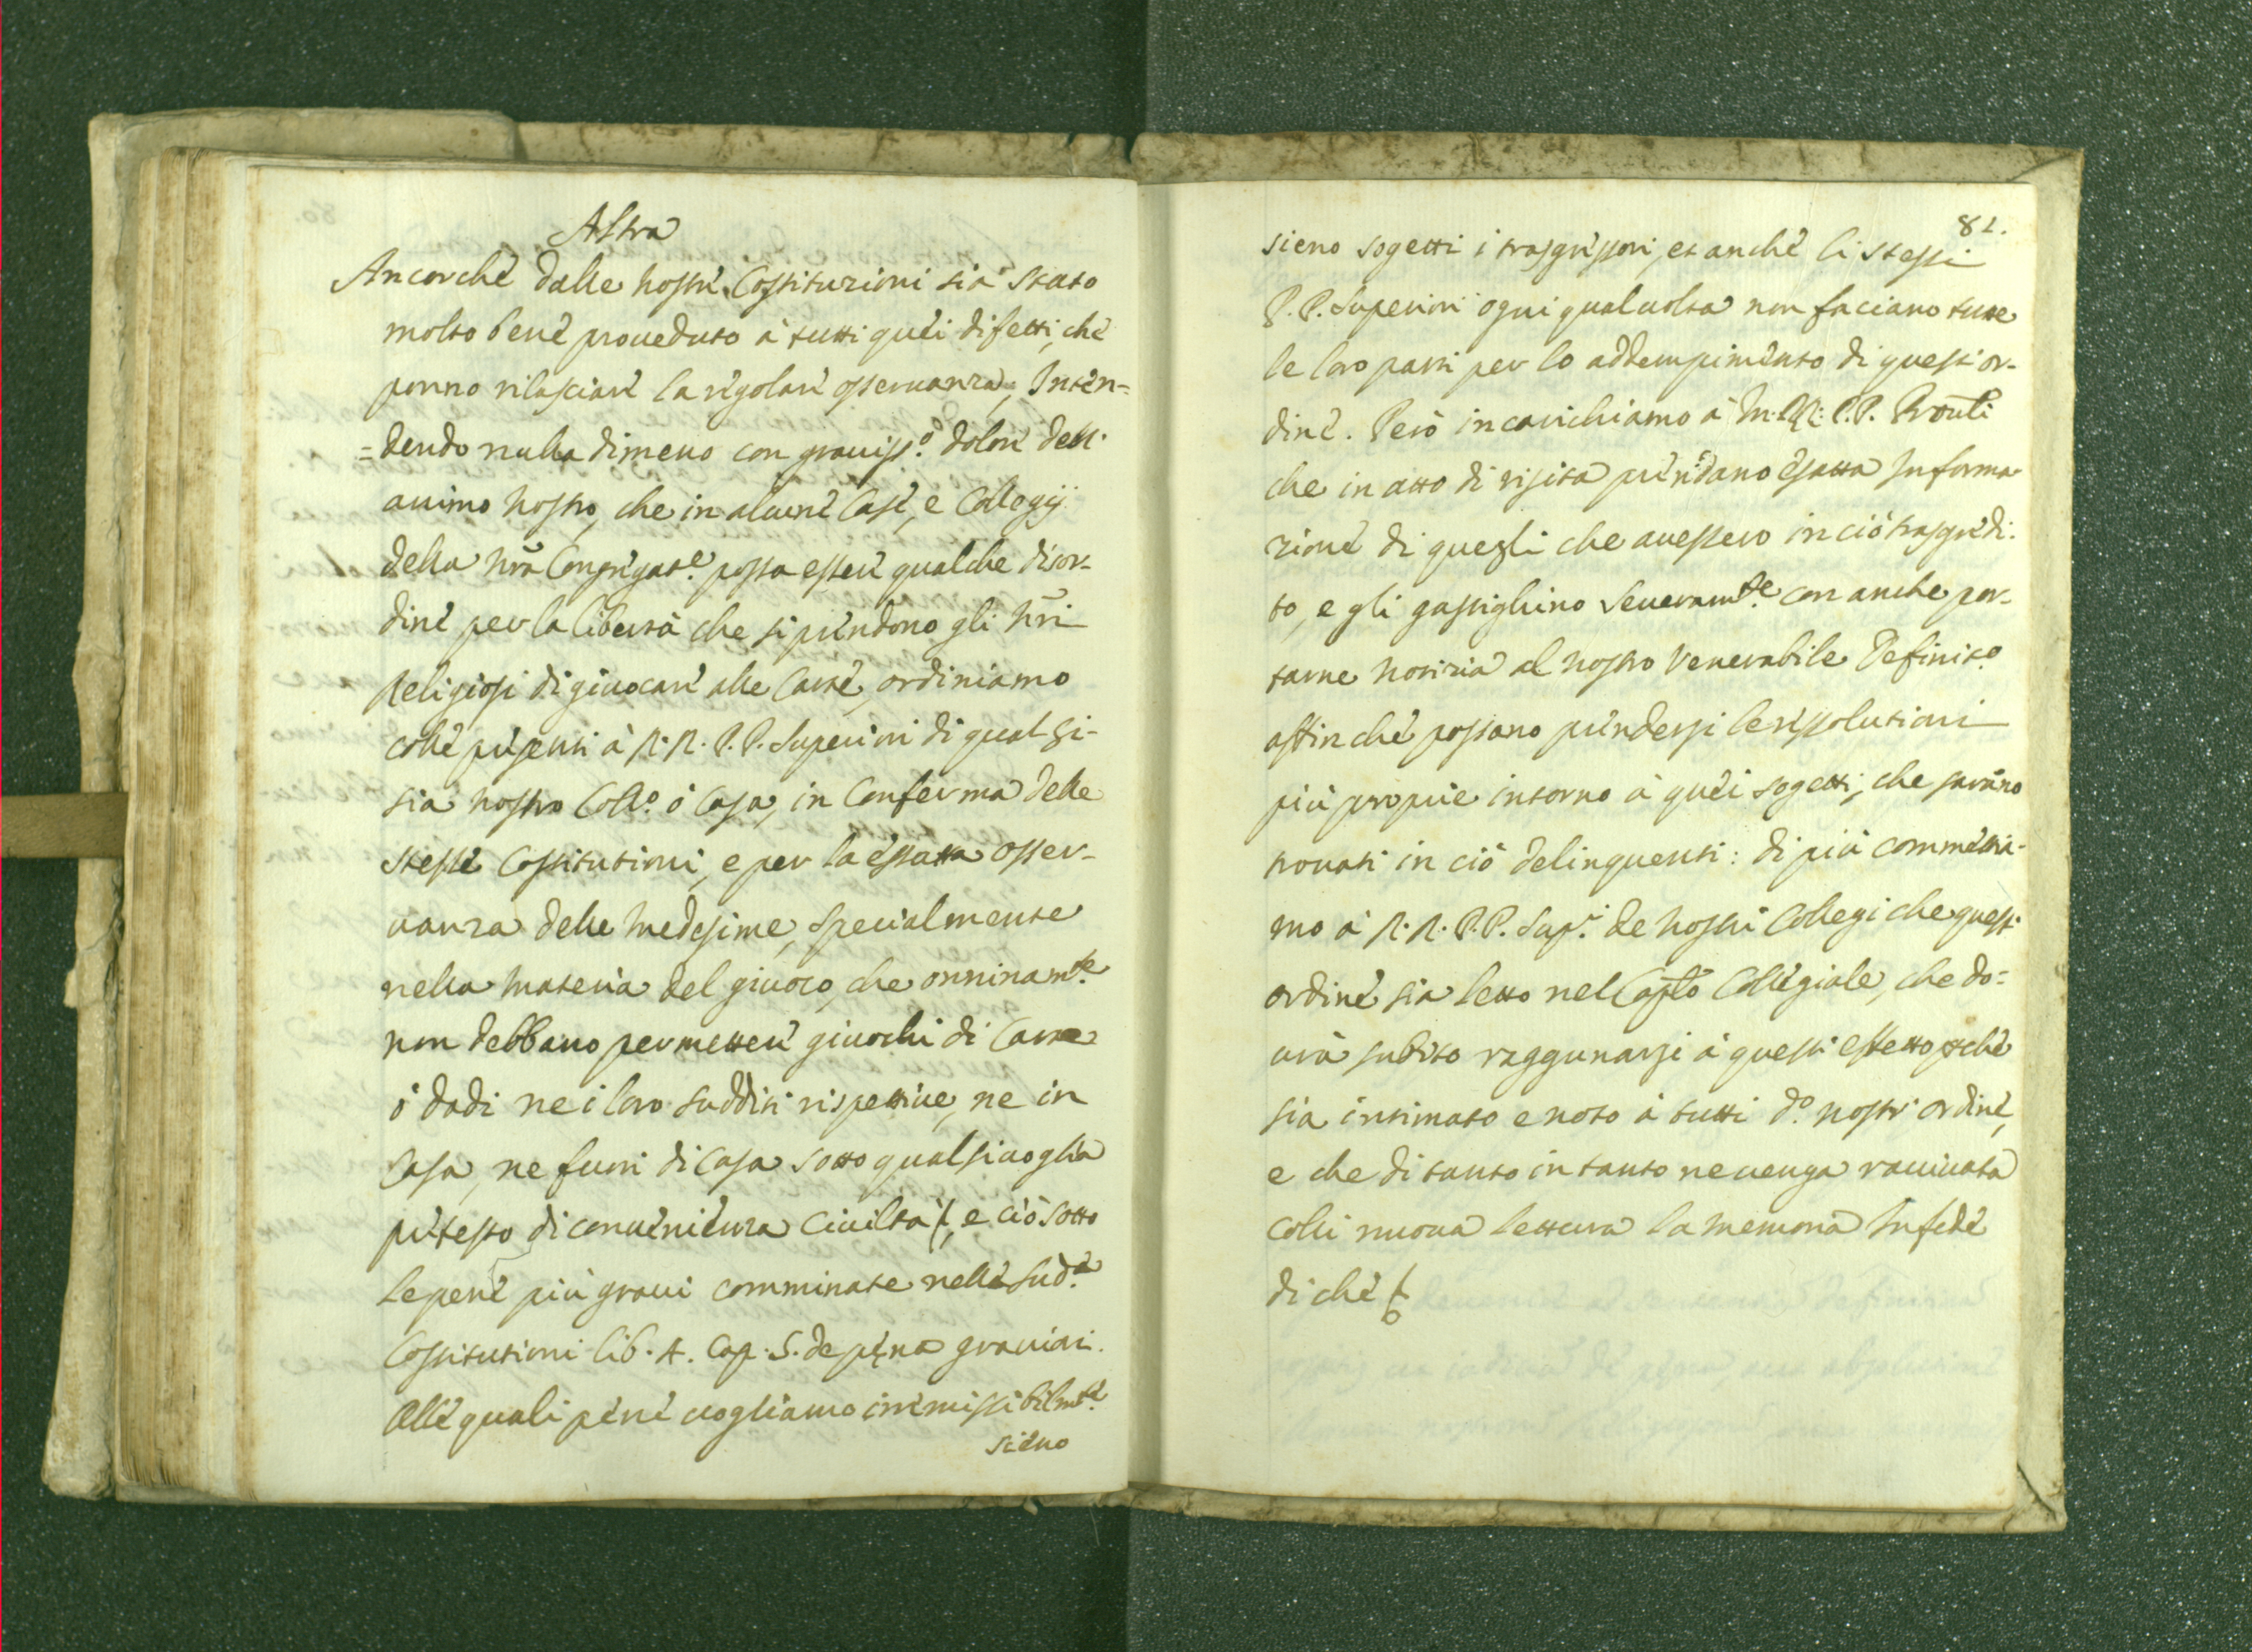 Altra
Ancorchè dalle nostre Costituzioni sia stato
molto bene proueduto à tutti quei difetti, che
ponno rilasciare la regolare osseruanza, Inten=
=dendo nulla dimeno con grauiss.º dolore dell'
animo nostro, che in alcune Case, e Collegij
della nr̃a Congregat.e possa essere qualche disor-
dine per la libertà che si prendono gli nr̃i
Religiosi di giuocare alle Carte, ordiniamo
colle presenti à R.R. P.P. Superiori di qual si-
sia nostro Coll.º ò Casa, in Conferma delle
stesse Costitutioni, e per la essatta osser-
uanza delle medesime, specialmente
nella materia del giuoco, che onninam.te
non debbano permettere giuochi di Carte
ò dadi ne i loro sudditi rispettiue, ne in
Casa, ne fuori di Casa sotto qualsiuoglia
pretesto di conuenienza Ciuiltà &, e ciò sotto
le pene più graui comminate nelle sud.e
Costitutioni lib. 4. Cap. 5. de pęna grauiori.
Alle quali pene uogliamo irremissibilm.te
sieno
81.
sieno sogetti i trasgressori, et anche li stessi
P.P. Superiori ogni qualuolta non faciano tutte
le loro parti per lo addempimento di questi or-
dine. Però incarichiamo à M.RR. P.P. Prouli
che in atto di visita prendano esatta Informa
zione di quegli che auessero in ciò trasgredi-
to, e gli gastighino seueram.te con anche por-
tarne notizia al nostro Venerabile Definit.º
affinchè possano prendersi le rissolutioni
più proprie intorno à quei sogetti, che sarano
trouati in ciò delinquenti: di più commettia-
mo à R.R. P.P. Sup.i de nostri Collegi che questi
ordine sia letto nel Capto Collegiale, che do=
urà subito raggunarsi à questi effetto pchè
sia intimato e noto à tutti d.º nostr' ordine,
e che di tanto in tanto ne uenga rauiuata
colli nuoua lettura la memoria In fede
di che &